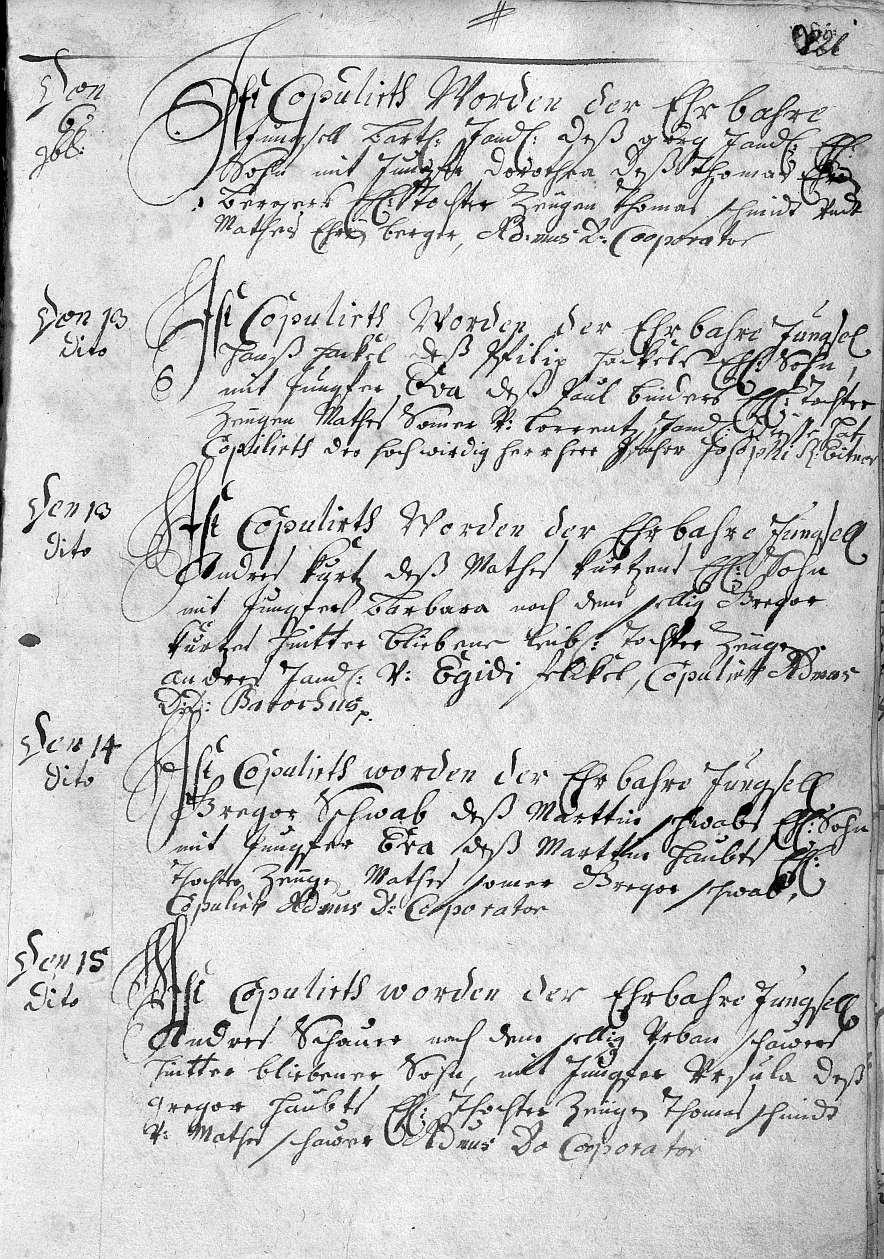 Den
6
9bb:
Ist Copulirth Worden der Ehrbahre
Jungsell Barth: Jandl: deß görg Jandl: Ehl:
Sohn mit Jungfer Dorothea deß Thomas
bergers Ehl: Tochter Zeugen Thomas schmidt Vndt
Mathes berger, Admus D: Cooporator
Den 13
dito
Ist Copulirth Worden der Ehrbahre Jungsell
Hanß Hackel deß Filip Hackels Ehl: Sohn,
mit Jungfer Eva deß Paul binders Ehl: Tochter
Zeugen Mathes Somer V: Lorrentz Jandl: Hat
Copulirth der hochwirdig herr herr Josephi
Den 13
dito
Ist Copulirth Worden der Ehrbahre Jungsell
Andres Kurtz deß Mathes Kurtzens Ehl: Sohn
mit Jungfer Barbara noch dem sellig Gregor
Kurtzen hintter bliebene leib: Tochter Zeuge
Andres Jandl: V: Egidi, Copulirth Admus
Den 14
dito
Ist Copulirth worden der Ehrbahre Jungsell
Gregor Schwab deß Marttin schwabs Ehl: Sohn
mit Jungfer Eva deß Marttin Haubts Ehl:
Thochter Zeuge Mathes somer Gregor schwab,
Copulirt Admus D: Coporator
Den 15
dito
Ist Copulirth worden der Ehrbahre Jungsell
Andres Schauer noch dem sellig Vrban schauers
hintter bliebener Sohn, mit Jungfer Vrsula deß
gregor Haubts Ehl: Thochter Zeugen Thomas schmidt
V: Mathes schauer Admus Do Cooporator